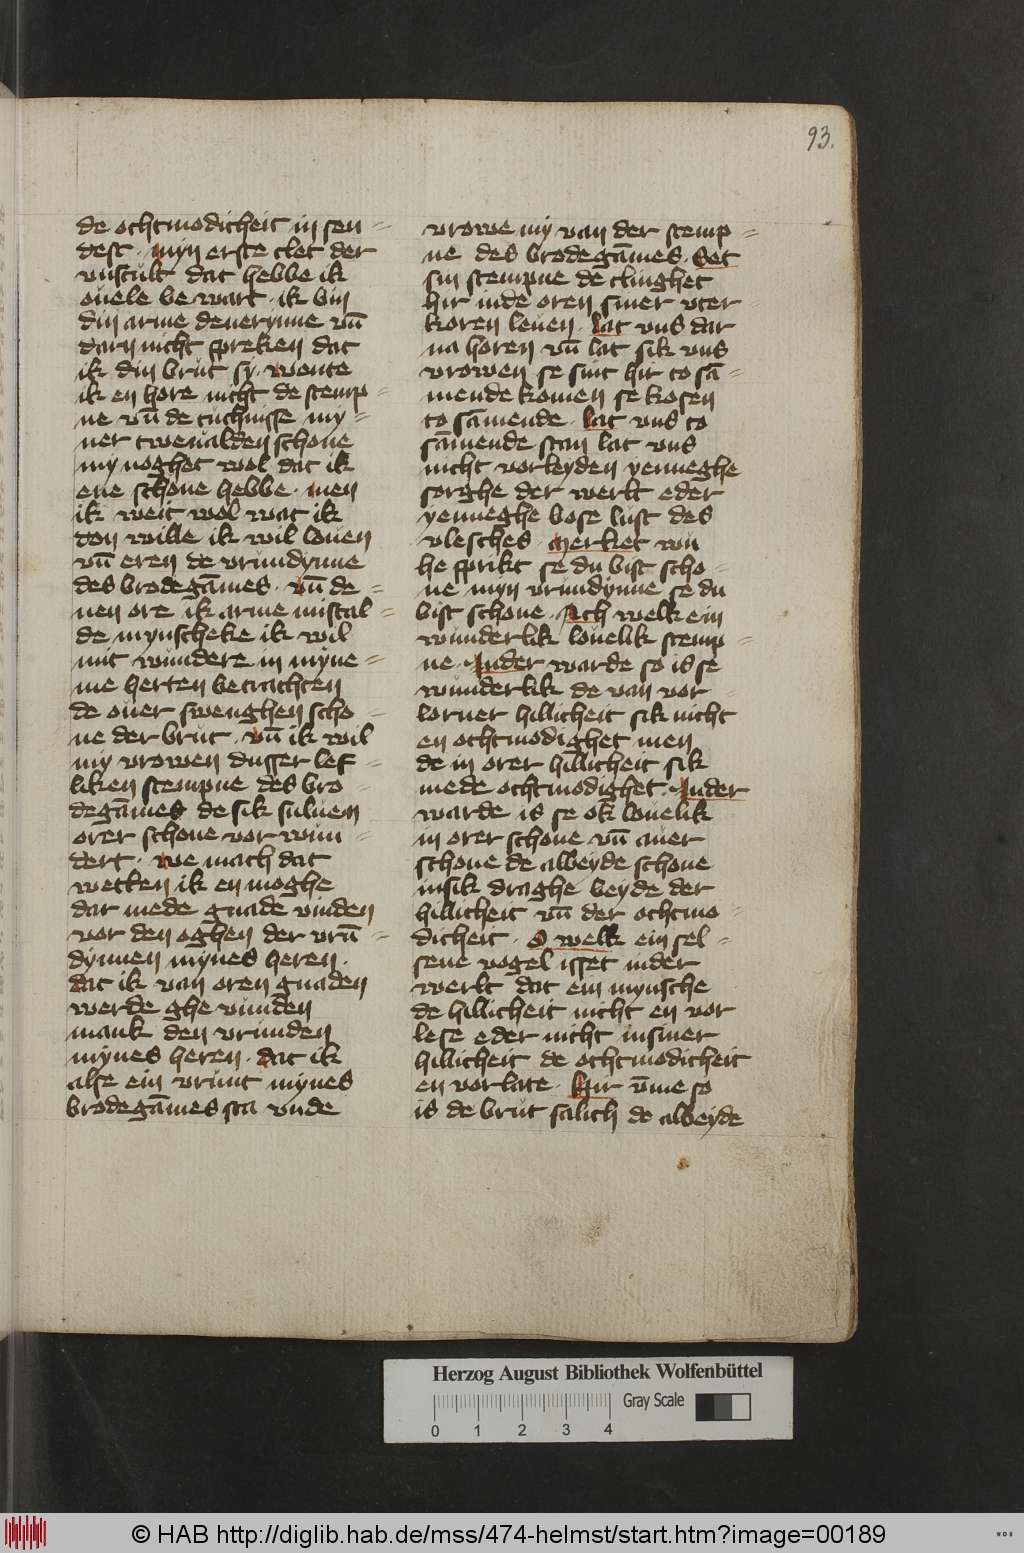 93.
de ochtmodicheit in sen=
dest · myn erste clet der
vnscult dat hebbe ik
ouele be wart · ik bin
din arme deuerynne vn̄
darn nicht spreken dat
ik din brut sy · wente
ik en hore nicht de stemp=
ne vn̄ de tuchnisse my=
ner twenalden schone
my noghet wol dat ik
ene schone hebbe · men
ik weit wol wat ik
don wille ik wil louen
vn̄ eren de vrundynne
des brodegāmes · vn̄ de=
nen ore ik arme mistal=
de mynscheke ik wil
mit wundere in myne=
me herten betrachten
de ouer swenghen scho=
ne der brut · vn̄ ik wil
my vrowen dusser lef=
liken stempne des bro=
degāmes de sik suluen
orer schone vor wun=
dert · we mach dat
wetken ik en moghe
dar mede gnade vinden
vor den oghen der vrū=
dynnen mynes heren ·
dat ik van oren gnaden
werde ghe vunden
mank den vrunden
mynes heren · dat ik
alse ein vrunt mynes
brodegāmes sta vnde
vrowe my van der stemp=
ne des brodegāmes · Set
sin stempne de clinghet
hir inde oren siner vter=
koren leuen · lat vns dar
na horen vn̄ lat sik vns
vrowen se sint hir to sā=
mende komen se kosen
to sāmende · lat vns to
sāmende stan lat vns
nicht vorleyden yenneghe
sorghe der werlt eder
yenneghe bose lust des
vlesches · Merket wu
he sprikt se du bist scho=
ne myn vrundynne se du
bist schone · Ach welk ein
wunderlik louelik stemp=
ne · Inder warde so is se
wunderlik de van vor=
lorner hillicheit sik nicht
en ochtmodighet men
de in orer hillicheit sik
mede ochtmodighet · Inder
warde is se ok louelik
in orer schone vn̄ auer
schone de albeyde schone
insik draghe beyde der
hillicheit vn̄ der ochtmo=
dicheit · O welk ein sel=
sene vogel isset inder
werlt dat ein mynsche
de hillicheit nicht en vor
lese eder nicht insiner
hillicheit de ochtmodicheit
en vorlate · Hir v̄me so
is de brut salich de albeyde
Herzog August Bibliothek Wolfenbüttel
Gray Scale
0 1 2 3 4
© HAB http://diglib.hab.de/mss/474-helmst/start.htm?image=00189